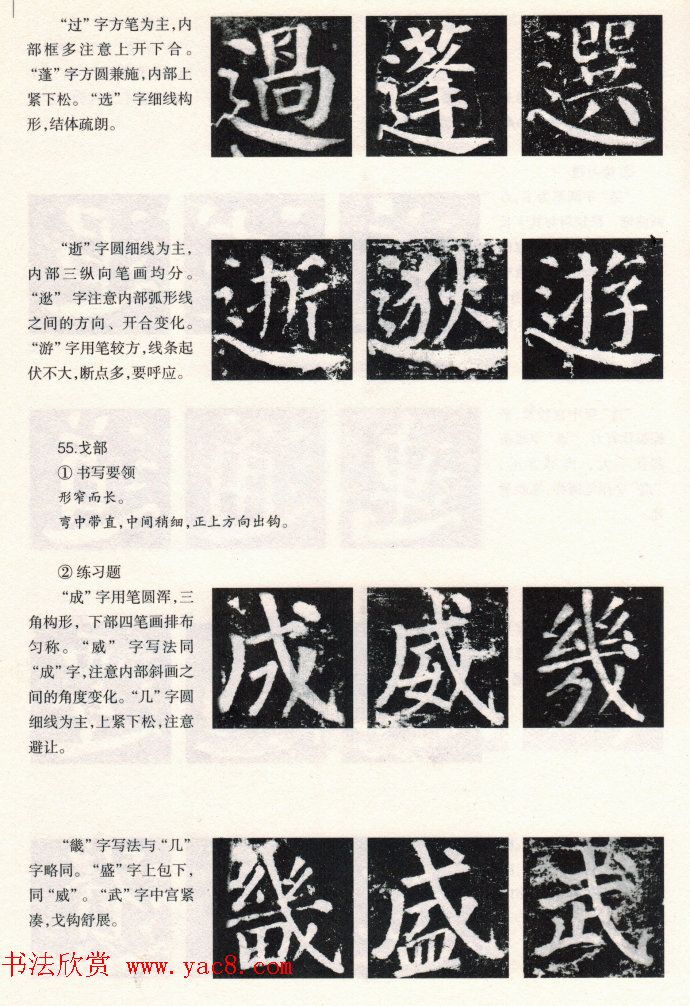 “过”字方笔为主，内
部框多注意上开下合。
“蓬”字方圆兼施，内部上
紧下松。“选”字细线构
形，结体疏朗。
過 蓬 選
“逝”字圆细线为主，
内部三纵向笔画均分。
“逖”字注意内部弧形线
之间的方向、开合变化。
“游”字用笔较方，线条起
伏不大，断点多，要呼应。
逝 逖 遊
55.戈部
① 书写要领
形窄而长。
弯中带直，中间稍细，正上方向出钩。
② 练习题
“成”字用笔圆浑，三
角构形，下部四笔画排布
匀称。“威”字写法同
“成”字，注意内部斜画之
间的角度变化。“几”字圆
细线为主，上紧下松，注意
避让。
成 威 幾
“畿”字写法与“几”
字略同。“盛”字上包下，
同“威”。“武”字中宫紧
凑，戈钩舒展。
畿 盛 武
书法欣赏 www.yac8.com